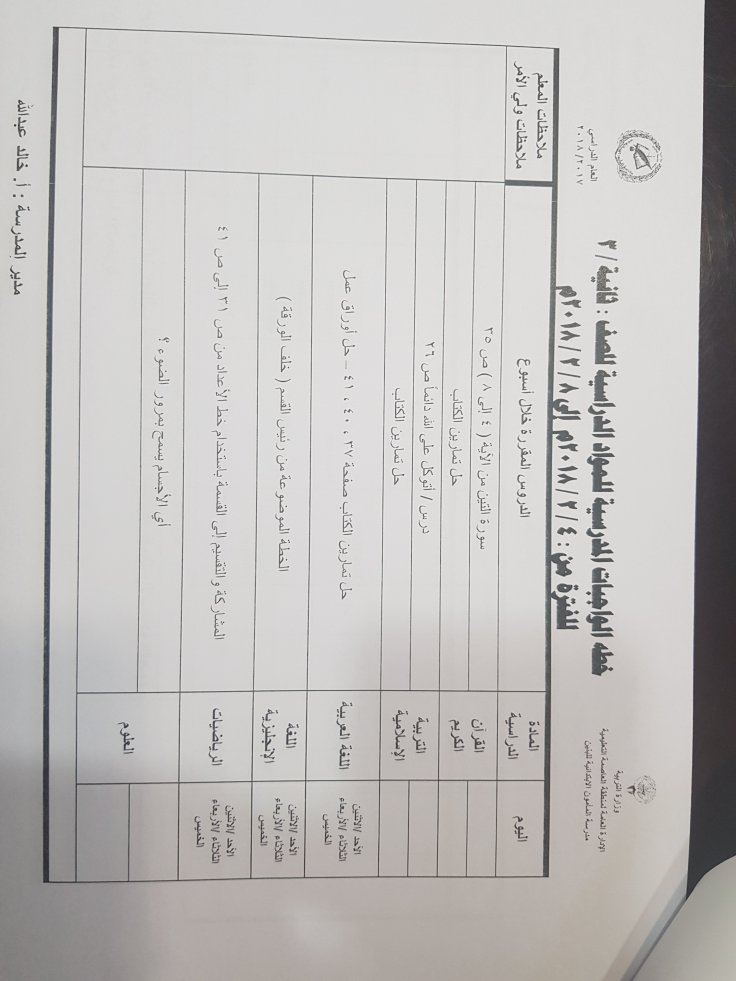 وزارة التربية
الإدارة العامة لمنطقة العاصمة التعليمية
مدرسة المأمون الابتدائية للبنين
العام الدراسي
٢٠١٨/٢٠١٧
خطه الواجبات المدرسية للمواد الدراسية للصف : ثانية / ٣
للفترة من : ٢٠١٨/٢/٤م إلى ٢٠١٨/٢/٨م
اليوم
المادة الدراسية
الدروس المقررة خلال أسبوع
ملاحظات المعلم
ملاحظات ولي الأمر
القرآن الكريم
سورة التين من الآية ( ٤ إلى ٨ ) ص ٣٥
حل تمارين الكتاب
التربية الإسلامية
درس / أتوكل على الله دائماً ص ٢٦
حل تمارين الكتاب
الأحد /الاثنين
الثلاثاء /الأربعاء
الخميس
اللغة العربية
حل تمارين الكتاب صفحة ٣٧ ، ٤٠ ، ٤١ – حل أوراق عمل
الأحد /الاثنين
الثلاثاء /الأربعاء
الخميس
اللغة الإنجليزية
الخطة الموضوعة من رئيس القسم ( خلف الورقة )
الأحد /الاثنين
الثلاثاء /الأربعاء
الخميس
الرياضيات
المشاركة والتقسيم إلى القسمة باستخدام خط الأعداد من ص ٣١ إلى ص ٤١
العلوم
أي الأجسام يسمح بمرور الضوء ؟
مدير المدرسة : أ. خالد عبدالله